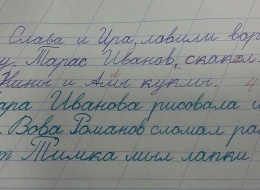 Слава и Ира, лавили вор
у. Тарас Иванов, скакал
Нины и Аты куклы. 4
ара Иванова рисовала
. Вова Романов сломал ра
т Тимка мыл лапки